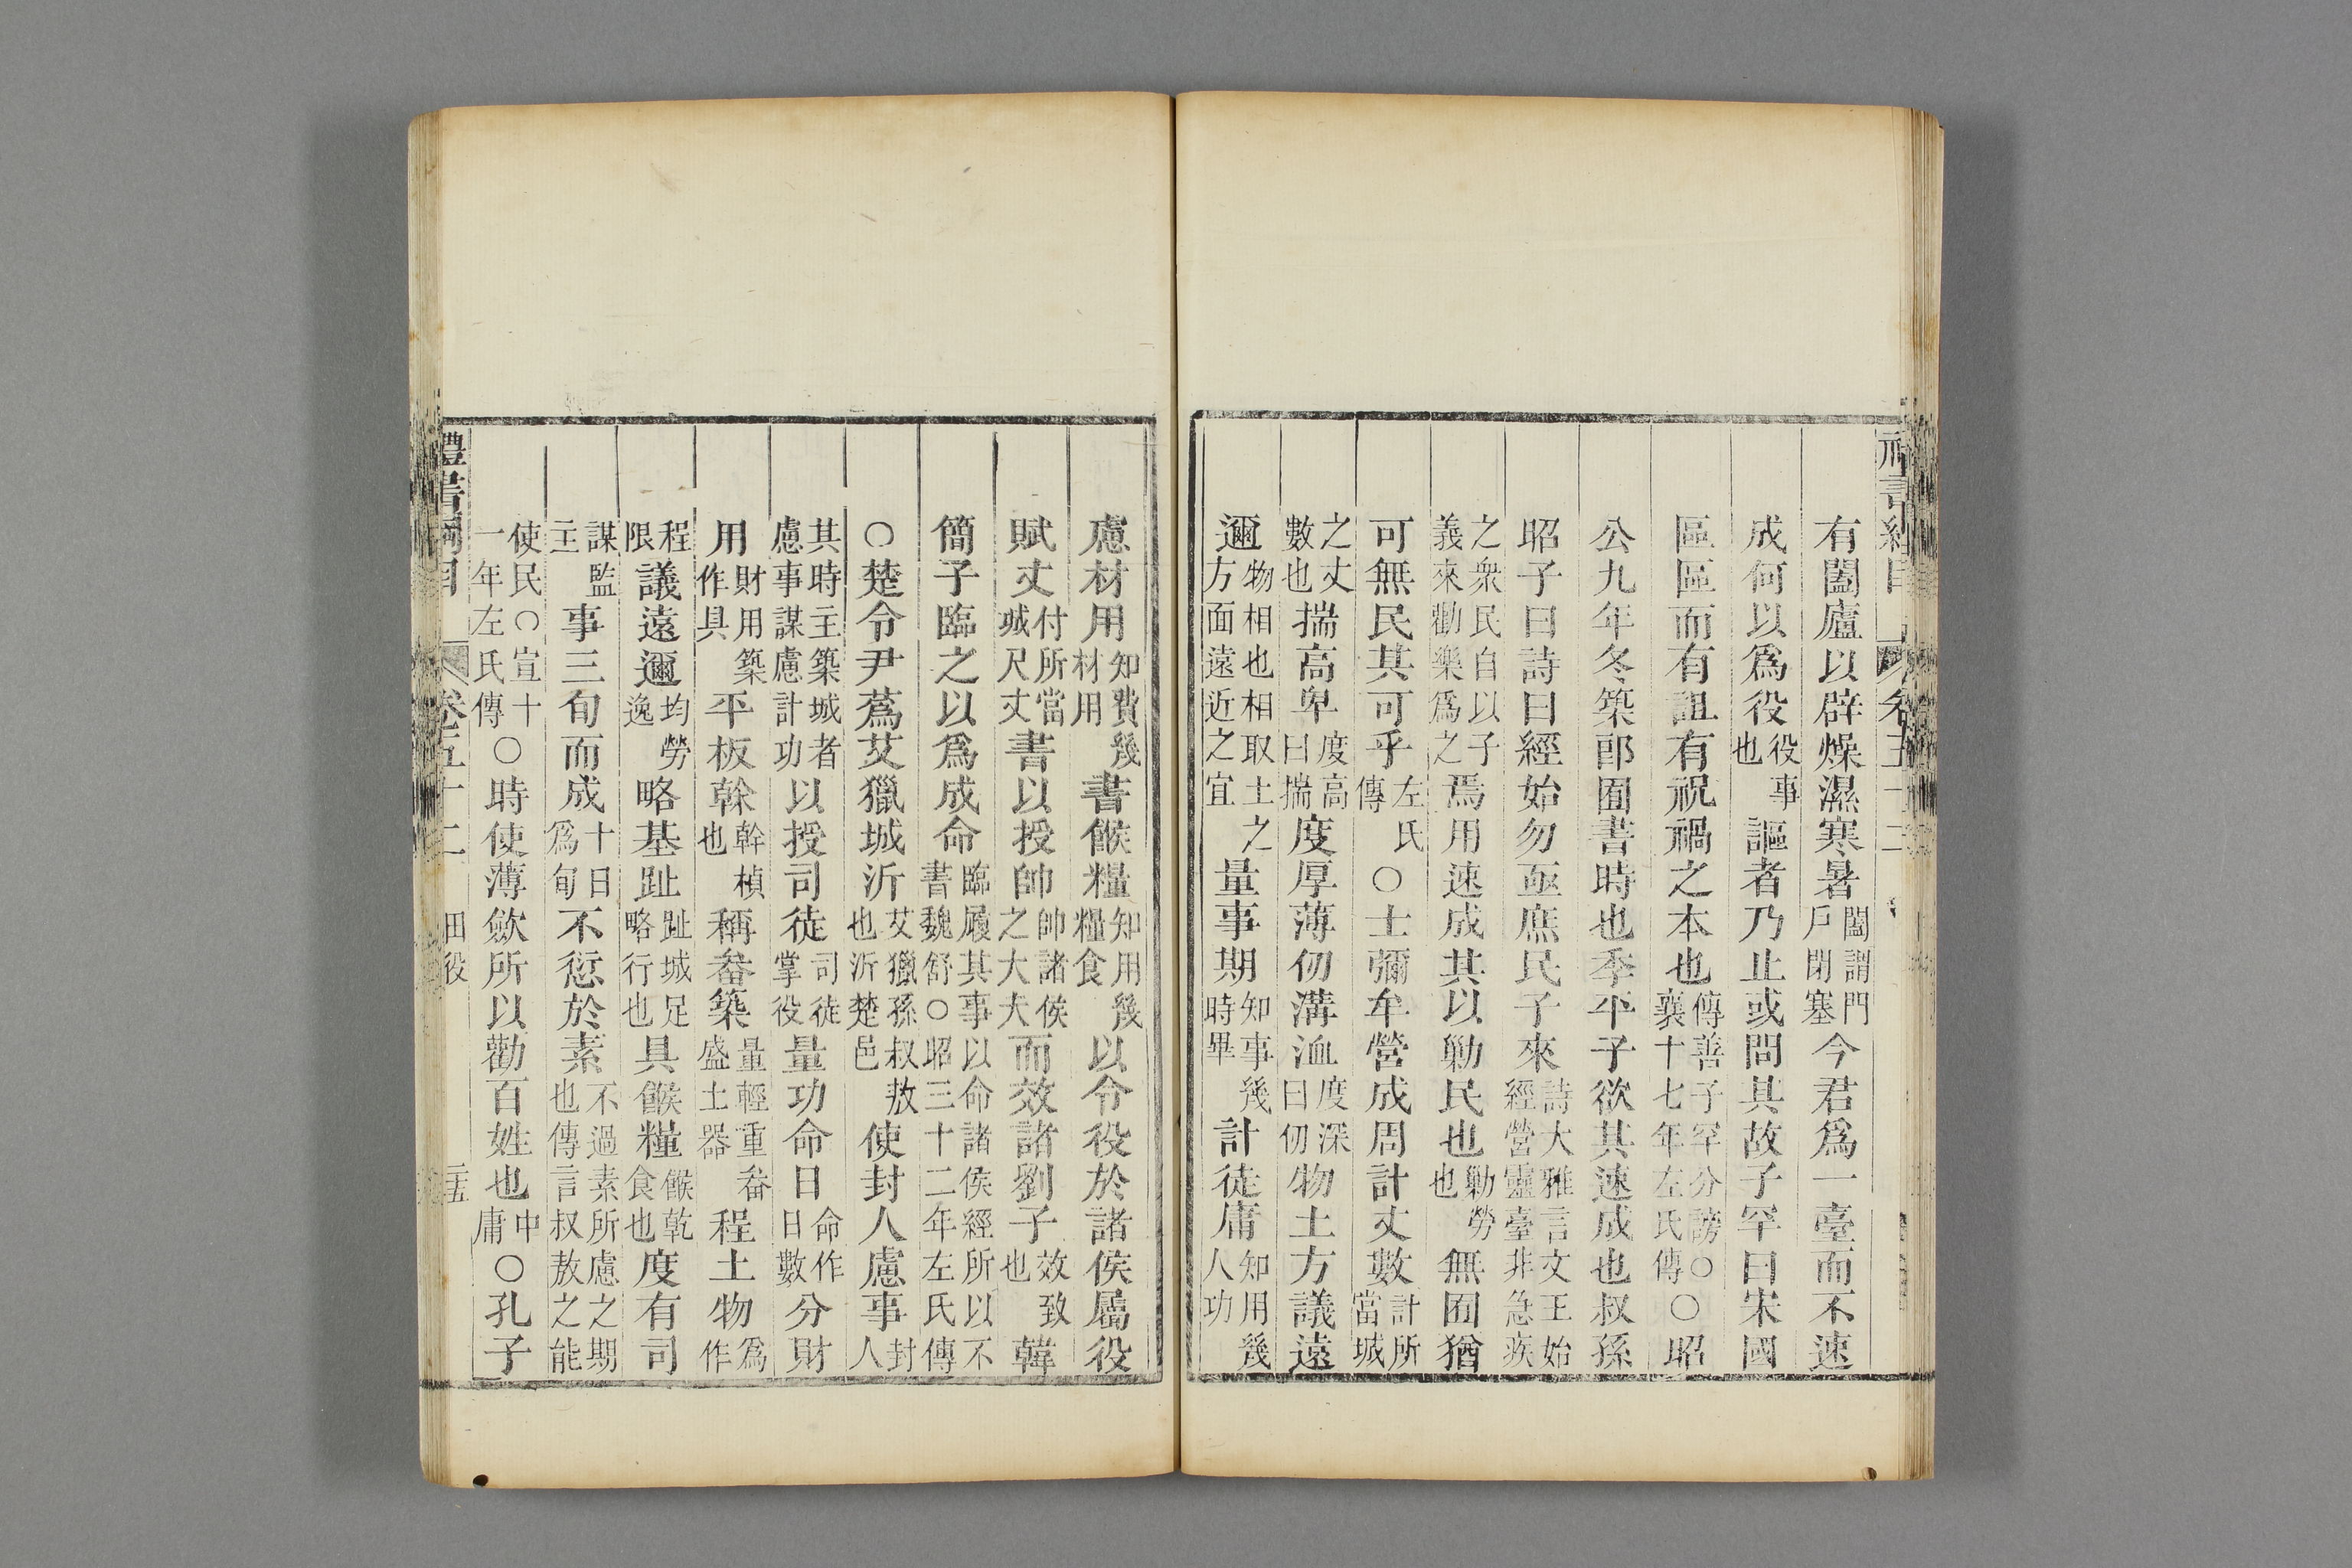 有闔廬以辟燥濕寒暑闔謂門戶閉塞今君爲一臺而不速
成何以爲役役事也謳者乃止或問其故子罕曰宋國
區區而有詛有祝禍之本也傳善子罕分謗○襄十七年左氏傳○昭
公九年冬築郎囿書時也季平子欲其速成也叔孫
昭子曰詩曰經始勿亟庶民子來詩大雅言文王始經營靈臺非急疾
之衆民自以子義來勸樂爲之焉用速成其以勦民也勦勞也無囿猶
可無民其可乎左氏傳○士彌牟營成周計丈數計所當城
之丈數也揣高卑度高曰揣度厚薄仞溝洫度深曰仞物土方議遠
邇物相也相取土之方面遠近之宜量事期知事幾時畢計徒庸知用幾人功
慮材用知費幾材用書餱糧知用幾糧食以令役於諸侯屬役
賦丈付所當城尺丈書以授帥帥諸侯之大夫而效諸劉子效致也韓
簡子臨之以爲成命臨履其事以命諸侯經所以不書魏舒○昭三十二年左氏傳
○楚令尹蔿艾獵城沂艾獵孫叔敖也沂楚邑使封人慮事封人
其時主築城者慮事謀慮計功以授司徒司徒掌役量功命日命作日數分財
用財用築作具平板榦幹楨也稱畚築量輕重畚盛土器程土物爲作
程限議遠邇均勞逸略基趾趾城足略行也具餱糧餱乾食也度有司
謀監主事三旬而成十日爲旬不愆於素不過素所慮之期也傳言叔敖之能
使民○宣十一年左氏傳○時使薄斂所以勸百姓也中庸○孔子
禮書綱目 卷五十二 田役